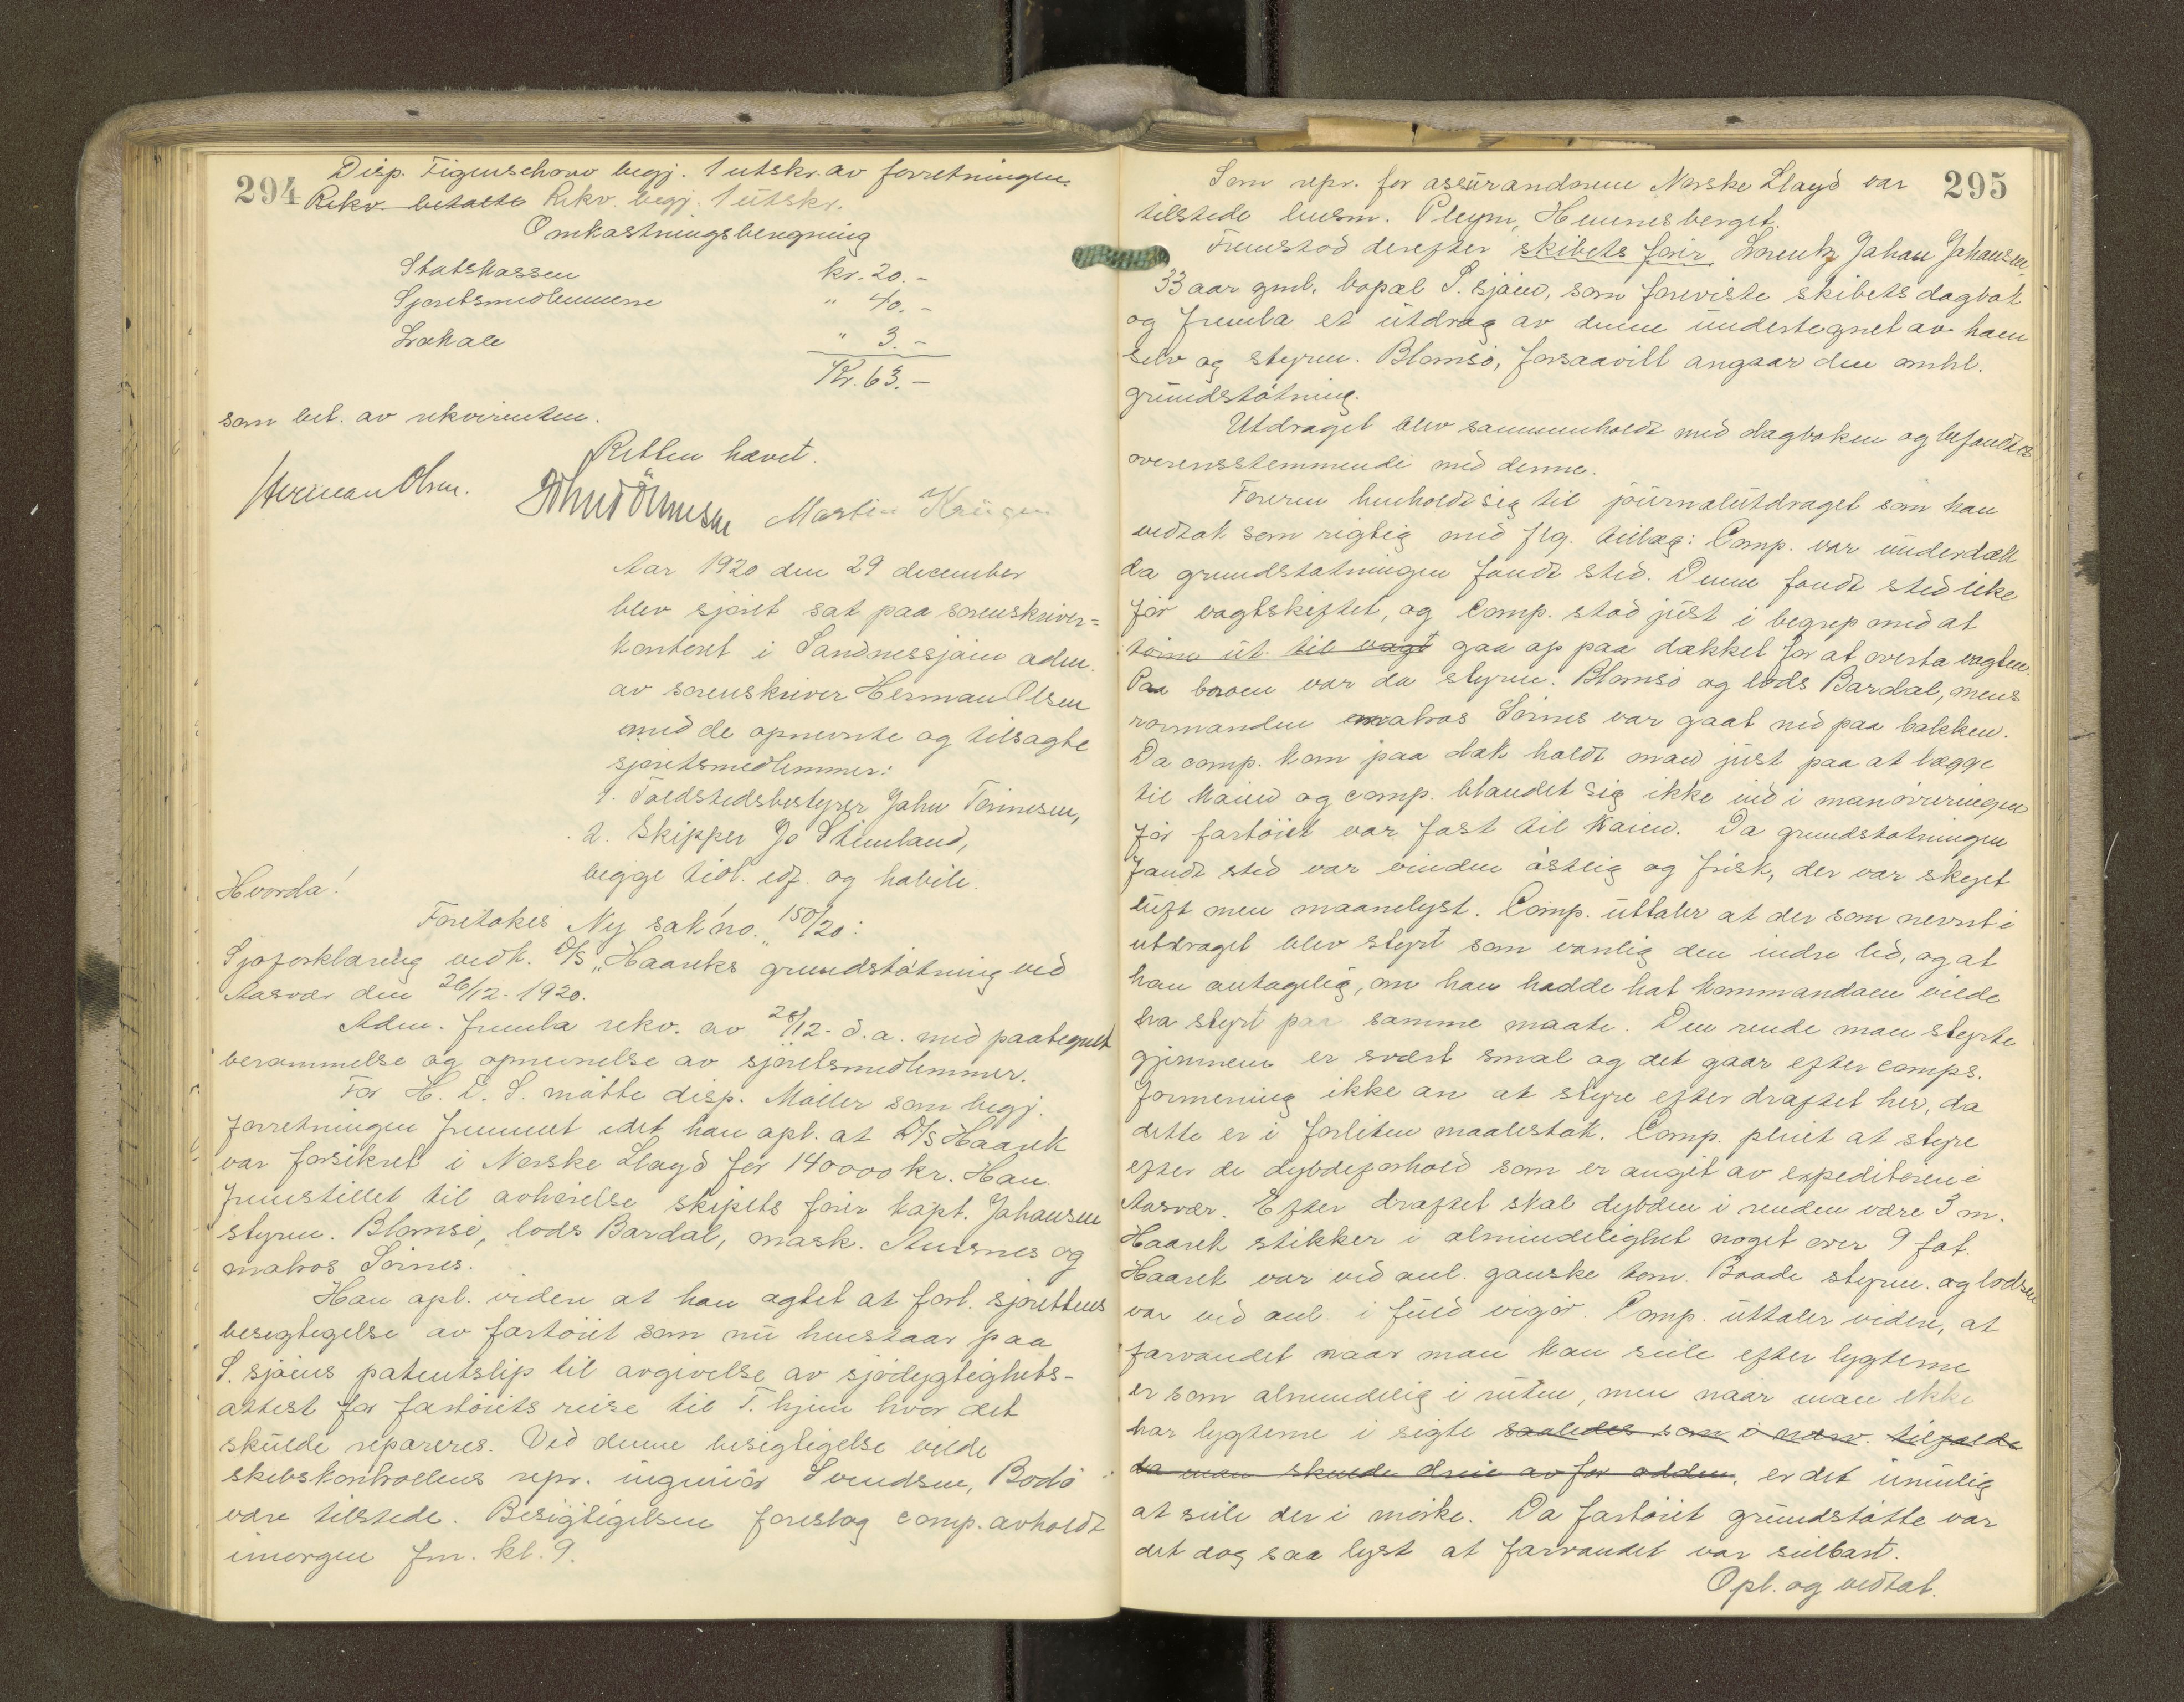 294
Disp. Figenschouw begj. 1 utskr. av forretningen.
Rekv. betalte Rekv. begj. 1 utskr.
Omkostningsberegning
Statskassen kr. 20.-
Sjøretsmedlemmene " 40.-
Lokale " 3.-
Kr. 63.-
som bet. av rekvirenten.
Retten hævet.
Herman Olsen. John Tönnesen Martin Krüger
Aar 1920 den 29 december
blev sjøret sat paa sorenskriver=
kontoret i Sandnessjøen adm.
av sorenskriver Herman Olsen
med de opnevnte og tilsagte
sjøretsmedlemmer:
1. Toldstedsbestyrer John Tönnesen,
2. Skipper Jo Stenland,
begge tidl. edf. og habile.
Hvorda!
Foretokes Ny sak no. 150/20:
Sjøforklaring vedk. D/S „Haareks grundstøtning ved
Aasvær den 26/12-1920.
Adm. fremla rekv. av 28/12- d.a. med paategnet
berammelse og opnevnelse av sjøretsmedlemmer.
For H. D. S. møtte disp. Möller som begj.
forretningen fremmet idet han opl. at D/S Haarek
var forsikret i Norske Lloyd for 140000 kr. Han
fremstillet til avhørelse skipets fører kapt. Johansen
styrm. Blomsø, lods Bardal, mask. Aursnes og
matros Sörnes.
Han opl. videre at han agtet at forl. sjørettens
besigtigelse av fartöiet som nu henstaar paa
S.sjøens patentslip til avgivelse av sjødygtighets-
attest for fartöiets reise til T.hjem hvor det
skulde repareres. Ved denne besigtigelse vilde
skibskontrollens repr. ingeniør Svendsen, Bodø
være tilstede. Besigtigelsen foreslog comp. avholdt
imorgen fm. kl. 9.
295
Som repr. for assurandørene Norske Lloyd var
tilstede lensm. Pleym, Hemnesberget.
Fremstod derefter skibets fører Lorentz Johan Johansen
33 aar gml. bopæl S.sjøen, som foreviste skibets dagbok
og fremla et utdrag av denne undertegnet av ham
selv og styrm. Blomsø, forsaavidt angaar den omhl.
grundstøtning.
Utdraget blev sammenholdt med dagboken og befandtes
overensstemmende med denne.
Føreren henholdt sig til journalutdraget som han
vedtok som rigtig med flg. tillæg: Comp. var underdæk
da grundstøtningen fandt sted. Denne fandt sted like
før vagtskiftet, og comp. stod just i begrep med at
törne ut til vagt gaa op paa dækket for at overta vagten.
Paa broen var da styrm. Blomsø og lods Bardal, mens
rormanden matros Sörnes var gaat ned paa bakken.
Da comp. kom paa dæk holdt man just paa at lægge
til kaien og comp. blandet sig ikke ind i manövreringen
før fartöiet var fast til kaien. Da grundstøtningen
fandt sted var vinden østlig og frisk, der var skyet
luft men maanelyst. Comp. uttaler at der som nevnt i
utdraget blev styrt som vanlig den indre led, og at
han antagelig, om han hadde hat kommandoen vilde
ha styrt paa samme maate. Den rende man styrte
gjennem er svært smal og det gaar efter comps.
formening ikke an at styre efter draftet her, da
dette er i forliten maalestok. Comp. pleiet at styre
efter de dybdeforhold som er angit av expeditøren i
Aasvær. Efter draftet skal dybden i renden være 3 m.
Haarek stikker i almindelighet noget over 9 fot.
Haarek var ved anl. ganske tom. Baade styrm. og lodsen
var ved anl. i fuld vigør. Comp. uttaler videre, at
farvandet naar man kan seile efter lygterne
er som almindelig i ruten, men naar man ikke
har lygterne i sigte saaledes som i nærv. tilfælde
da man skulde dreie av for odden, er det umulig
at seile der i mørke. Da fartöiet grundstøtte var
det dog saa lyst at farvandet var seilbart.
Opl. og vedtat.